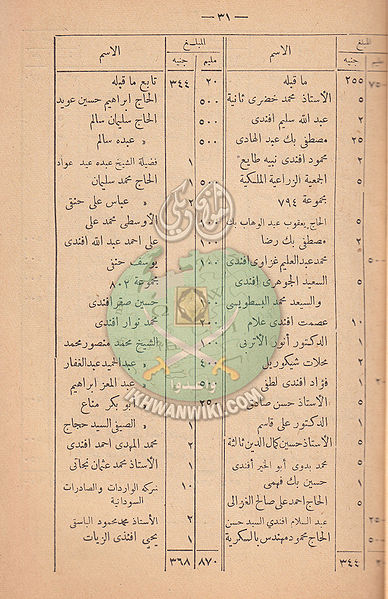 — ٣١ —
المبلغ الاسم
مليم جنيه
٢٥٥ ما قبله
٥ الأستاذ محمد خضرى ثانية
٥ عبد الله سليم افندى
٢٥ مصطفى بك عبد الهادى
٢ محمود افندى نبيه طايع
٥ الجمعية الزراعية الملكية
مجموعة ٧٩٤
٥ الحاج يعقوب عبد الوهاب بك
٢ مصطفى بك رضا
محمد عبد العليم غزاوى افندى
السعيد الجوهرى افندى
والسيد محمد البسطويسى
١٠ عصمت افندى علام
١ الدكتور أنور الأتربى
٢ محلات شيكوريل
١ فؤاد افندى لطفى
الأستاذ حسن صادق
١ الدكتور على قاسم
٥ الأستاذ حسين كمال الدين ثالثة
محمد بدوى أبو الخير أفندى
حسين بك فهمى
٥ الحاج احمد على صالح الغزالى
عبد السلام افندى السيد حسن
الحاج محمود مهندس بالسكرية
٣٤٤
المبلغ الاسم
مليم جنيه
٢٠ ٣٤٤ تابع ما قبله
٥٠٠ الحاج ابراهيم حسين عويد
٥٠٠ الحاج سليمان سالم
٥٠٠ » عبده سالم
١ فضيلة الشيخ عبده عيد عواد
٥٠٠ ١ الحاج محمد سليمان
٢ » عباس على حنفى
الأوسطى محمد على
١٠٠ على احمد عبد الله افندى
١٠٠ يوسف حنفى
مجموعة ٨٠٢
حسين صقر افندى
٢٠٠ محمد نوار افندى
١٠٠ الشيخ محمد منصور محمد
٤٠٠ » عبد الحميد عبد الغفار
٥٠٠ » عبد المعز ابراهيم
٢٥٠ أبو بكر مناع
١ » الصيفى السيد حجاج
٢ محمد المهدى احمد افندى
١ الأستاذ محمد عثمان نجاتى
١٠ شركة الواردات والصادرات
السودانية
٢ الأستاذ محمد محمود الباسقى
١ يحيى افندى الزيات
٨٧٠ ٣٦٨
وأعدوا
IKHWANWIKI.COM